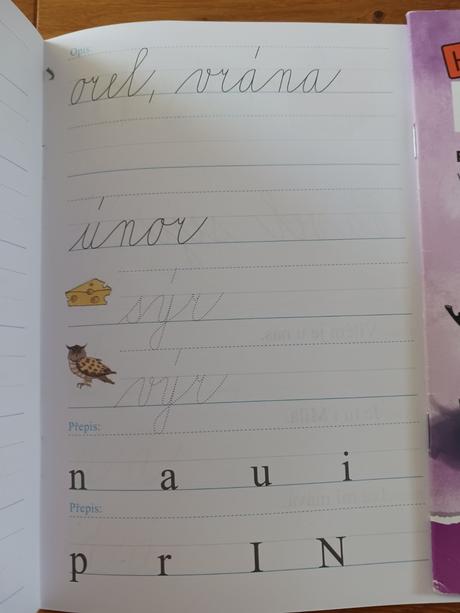 Opis:
orel, vrána
únor
sýr
výr
Přepis:
n a u i
Přepis:
p r I N